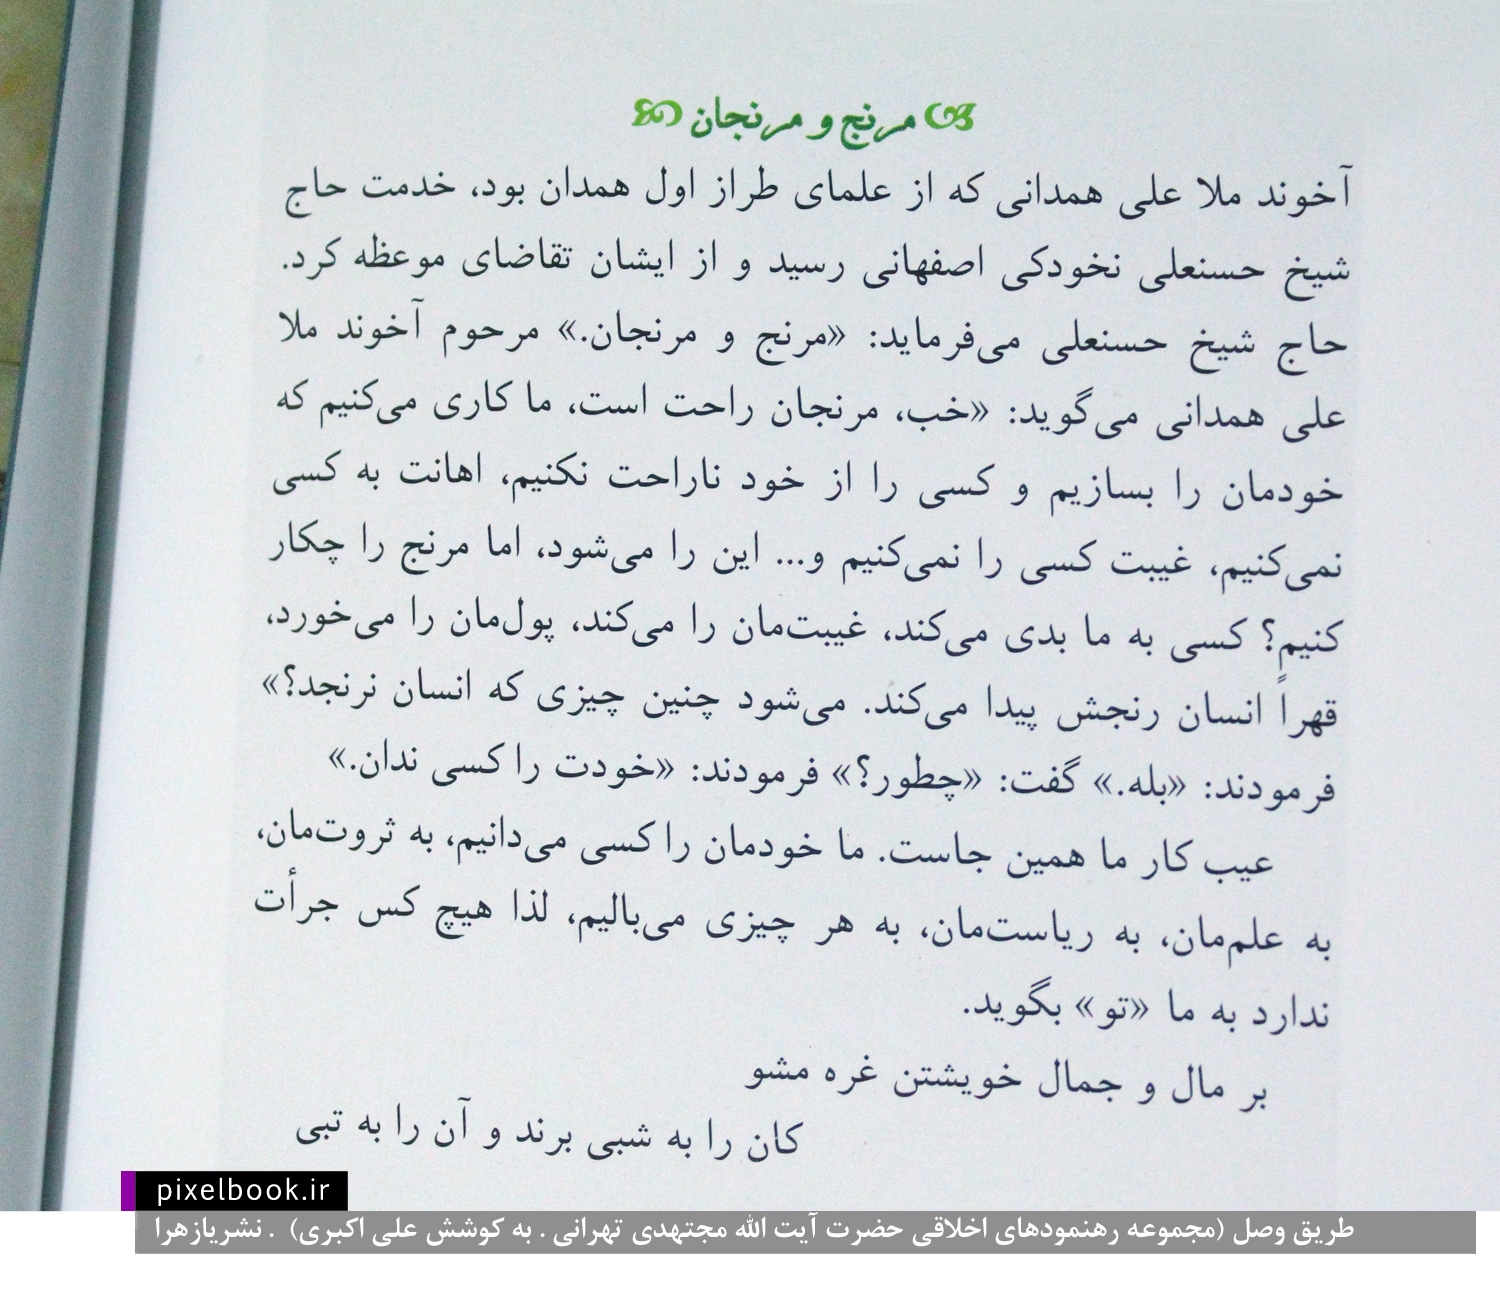 مرنج و مرنجان
آخوند ملا علی همدانی که از علمای طراز اول همدان بود، خدمت حاج
شیخ حسنعلی نخودکی اصفهانی رسید و از ایشان تقاضای موعظه کرد.
حاج شیخ حسنعلی می‌فرماید: «مرنج و مرنجان.» مرحوم آخوند ملا
علی همدانی می‌گوید: «خب، مرنجان راحت است، ما کاری می‌کنیم که
خودمان را بسازیم و کسی را از خود ناراحت نکنیم، اهانت به کسی
نمی‌کنیم، غیبت کسی را نمی‌کنیم و... این را می‌شود، اما مرنج را چکار
کنیم؟ کسی به ما بدی می‌کند، غیبت‌مان را می‌کند، پول‌مان را می‌خورد،
قهراً انسان رنجش پیدا می‌کند. می‌شود چنین چیزی که انسان نرنجد؟»
فرمودند: «بله.» گفت: «چطور؟» فرمودند: «خودت را کسی ندان.»
عیب کار ما همین جاست. ما خودمان را کسی می‌دانیم، به ثروت‌مان،
به علم‌مان، به ریاست‌مان، به هر چیزی می‌بالیم، لذا هیچ کس جرأت
ندارد به ما «تو» بگوید.
بر مال و جمال خویشتن غره مشو
کان را به شبی برند و آن را به تبی
pixelbook.ir
طریق وصل (مجموعه رهنمودهای اخلاقی حضرت آیت الله مجتهدی تهرانی . به کوشش علی اکبری) . نشریازهرا